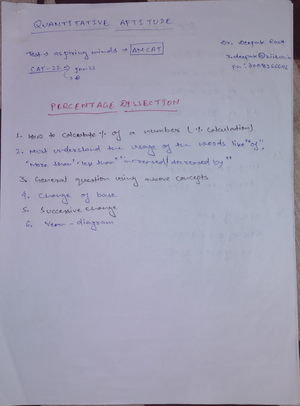 QUANTITATIVE APTITUDE
Test → aspiring minds → AMCAT
Dr. Deepak
CAT-22
PERCENTAGE DISSECTION
1. How to calculate % of a number (% calculation)
2. Must understand the usage of the words like "of",
"more than", "less than" "increased/decreased by"
3. General question using above concepts
4. Change of base
5. Successive change
6. Venn-diagram